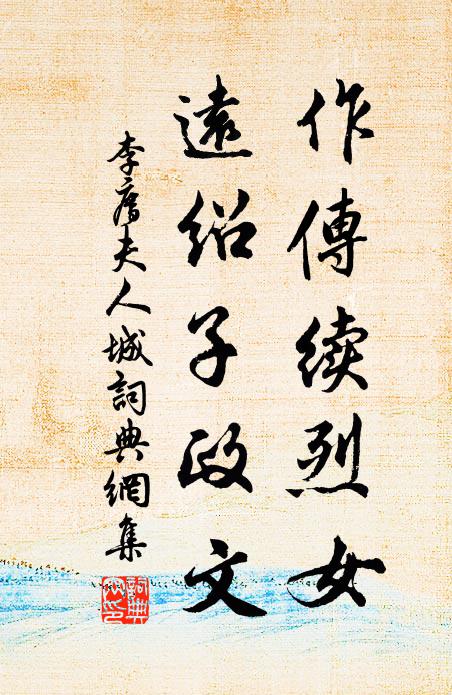 作傳續烈女
遠紹子政文
李廌夫人城詞典網集
詞典